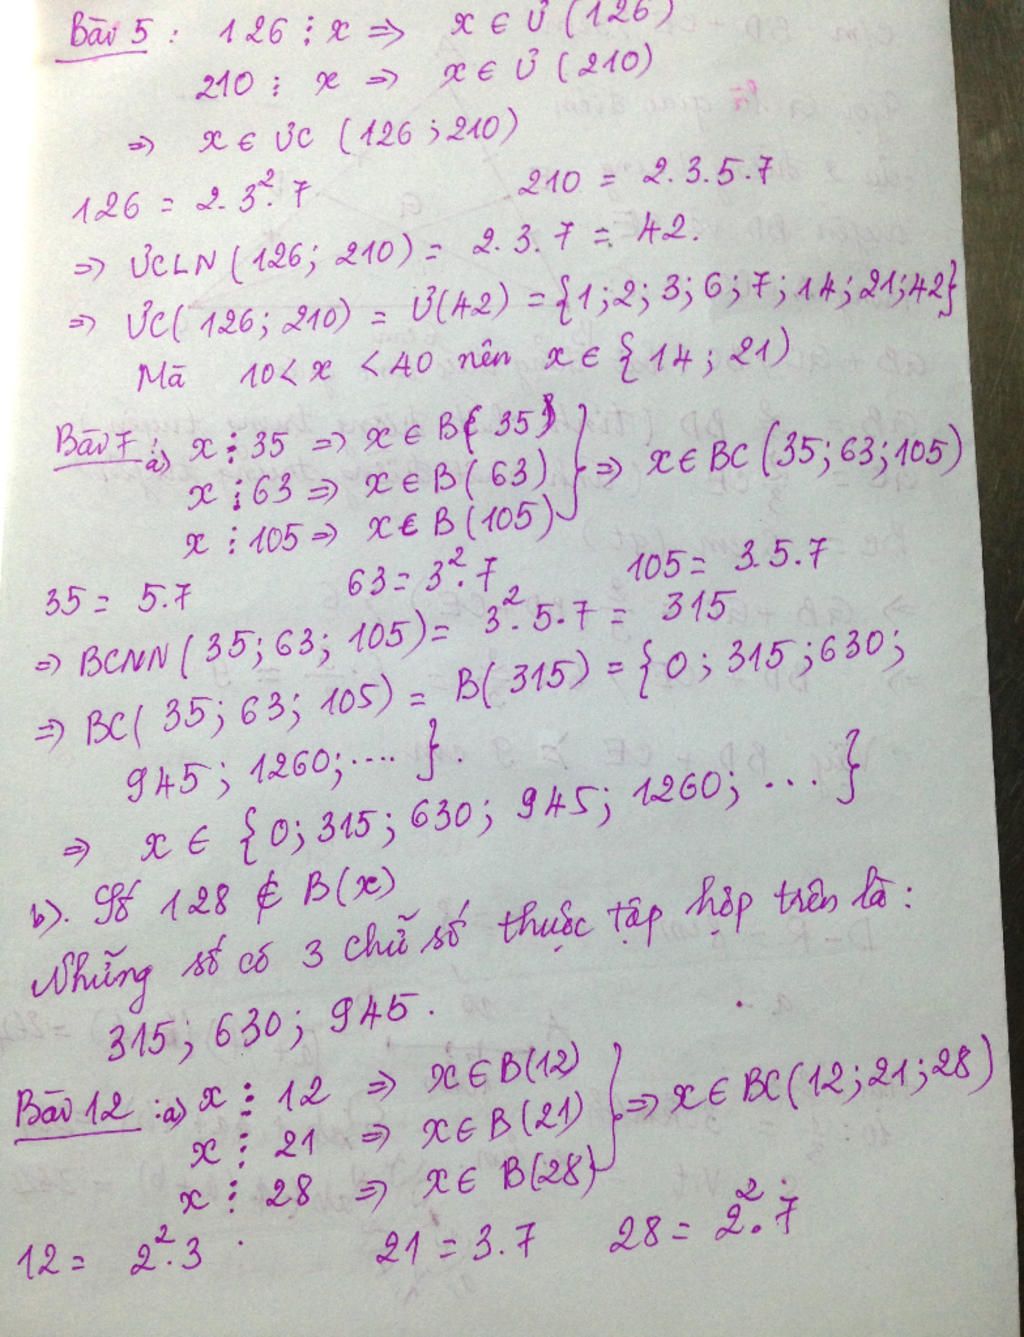 Bài 5 : 126 ⋮ x => x ∈ Ư (126)
210 ⋮ x => x ∈ Ư (210)
=> x ∈ ƯC (126 ; 210)
126 = 2.3².7 210 = 2.3.5.7
=> ƯCLN (126; 210) = 2.3.7 = 42.
=> ƯC(126; 210) = Ư(42) = {1; 2; 3; 6; 7; 14; 21; 42}
Mà 10 < x < 40 nên x ∈ {14 ; 21)
Bài 7 : a) x ⋮ 35 => x ∈ B(35) } => x ∈ BC (35; 63; 105)
x ⋮ 63 => x ∈ B(63)
x ⋮ 105 => x ∈ B(105)
35 = 5.7 63 = 3².7 105 = 3.5.7
=> BCNN (35; 63; 105) = 3².5.7 = 315
=> BC( 35; 63; 105) = B(315) = {0; 315; 630;
945; 1260; .... }.
=> x ∈ {0; 315; 630; 945; 1260; ... }
b). Số 128 ∉ B(x)
Những số có 3 chữ số thuộc tập hợp trên là :
315; 630; 945.
Bài 12 : a) x ⋮ 12 => x ∈ B(12) } => x ∈ BC(12; 21; 28)
x ⋮ 21 => x ∈ B(21)
x ⋮ 28 => x ∈ B(28)
12 = 2².3 21 = 3.7 28 = 2².7